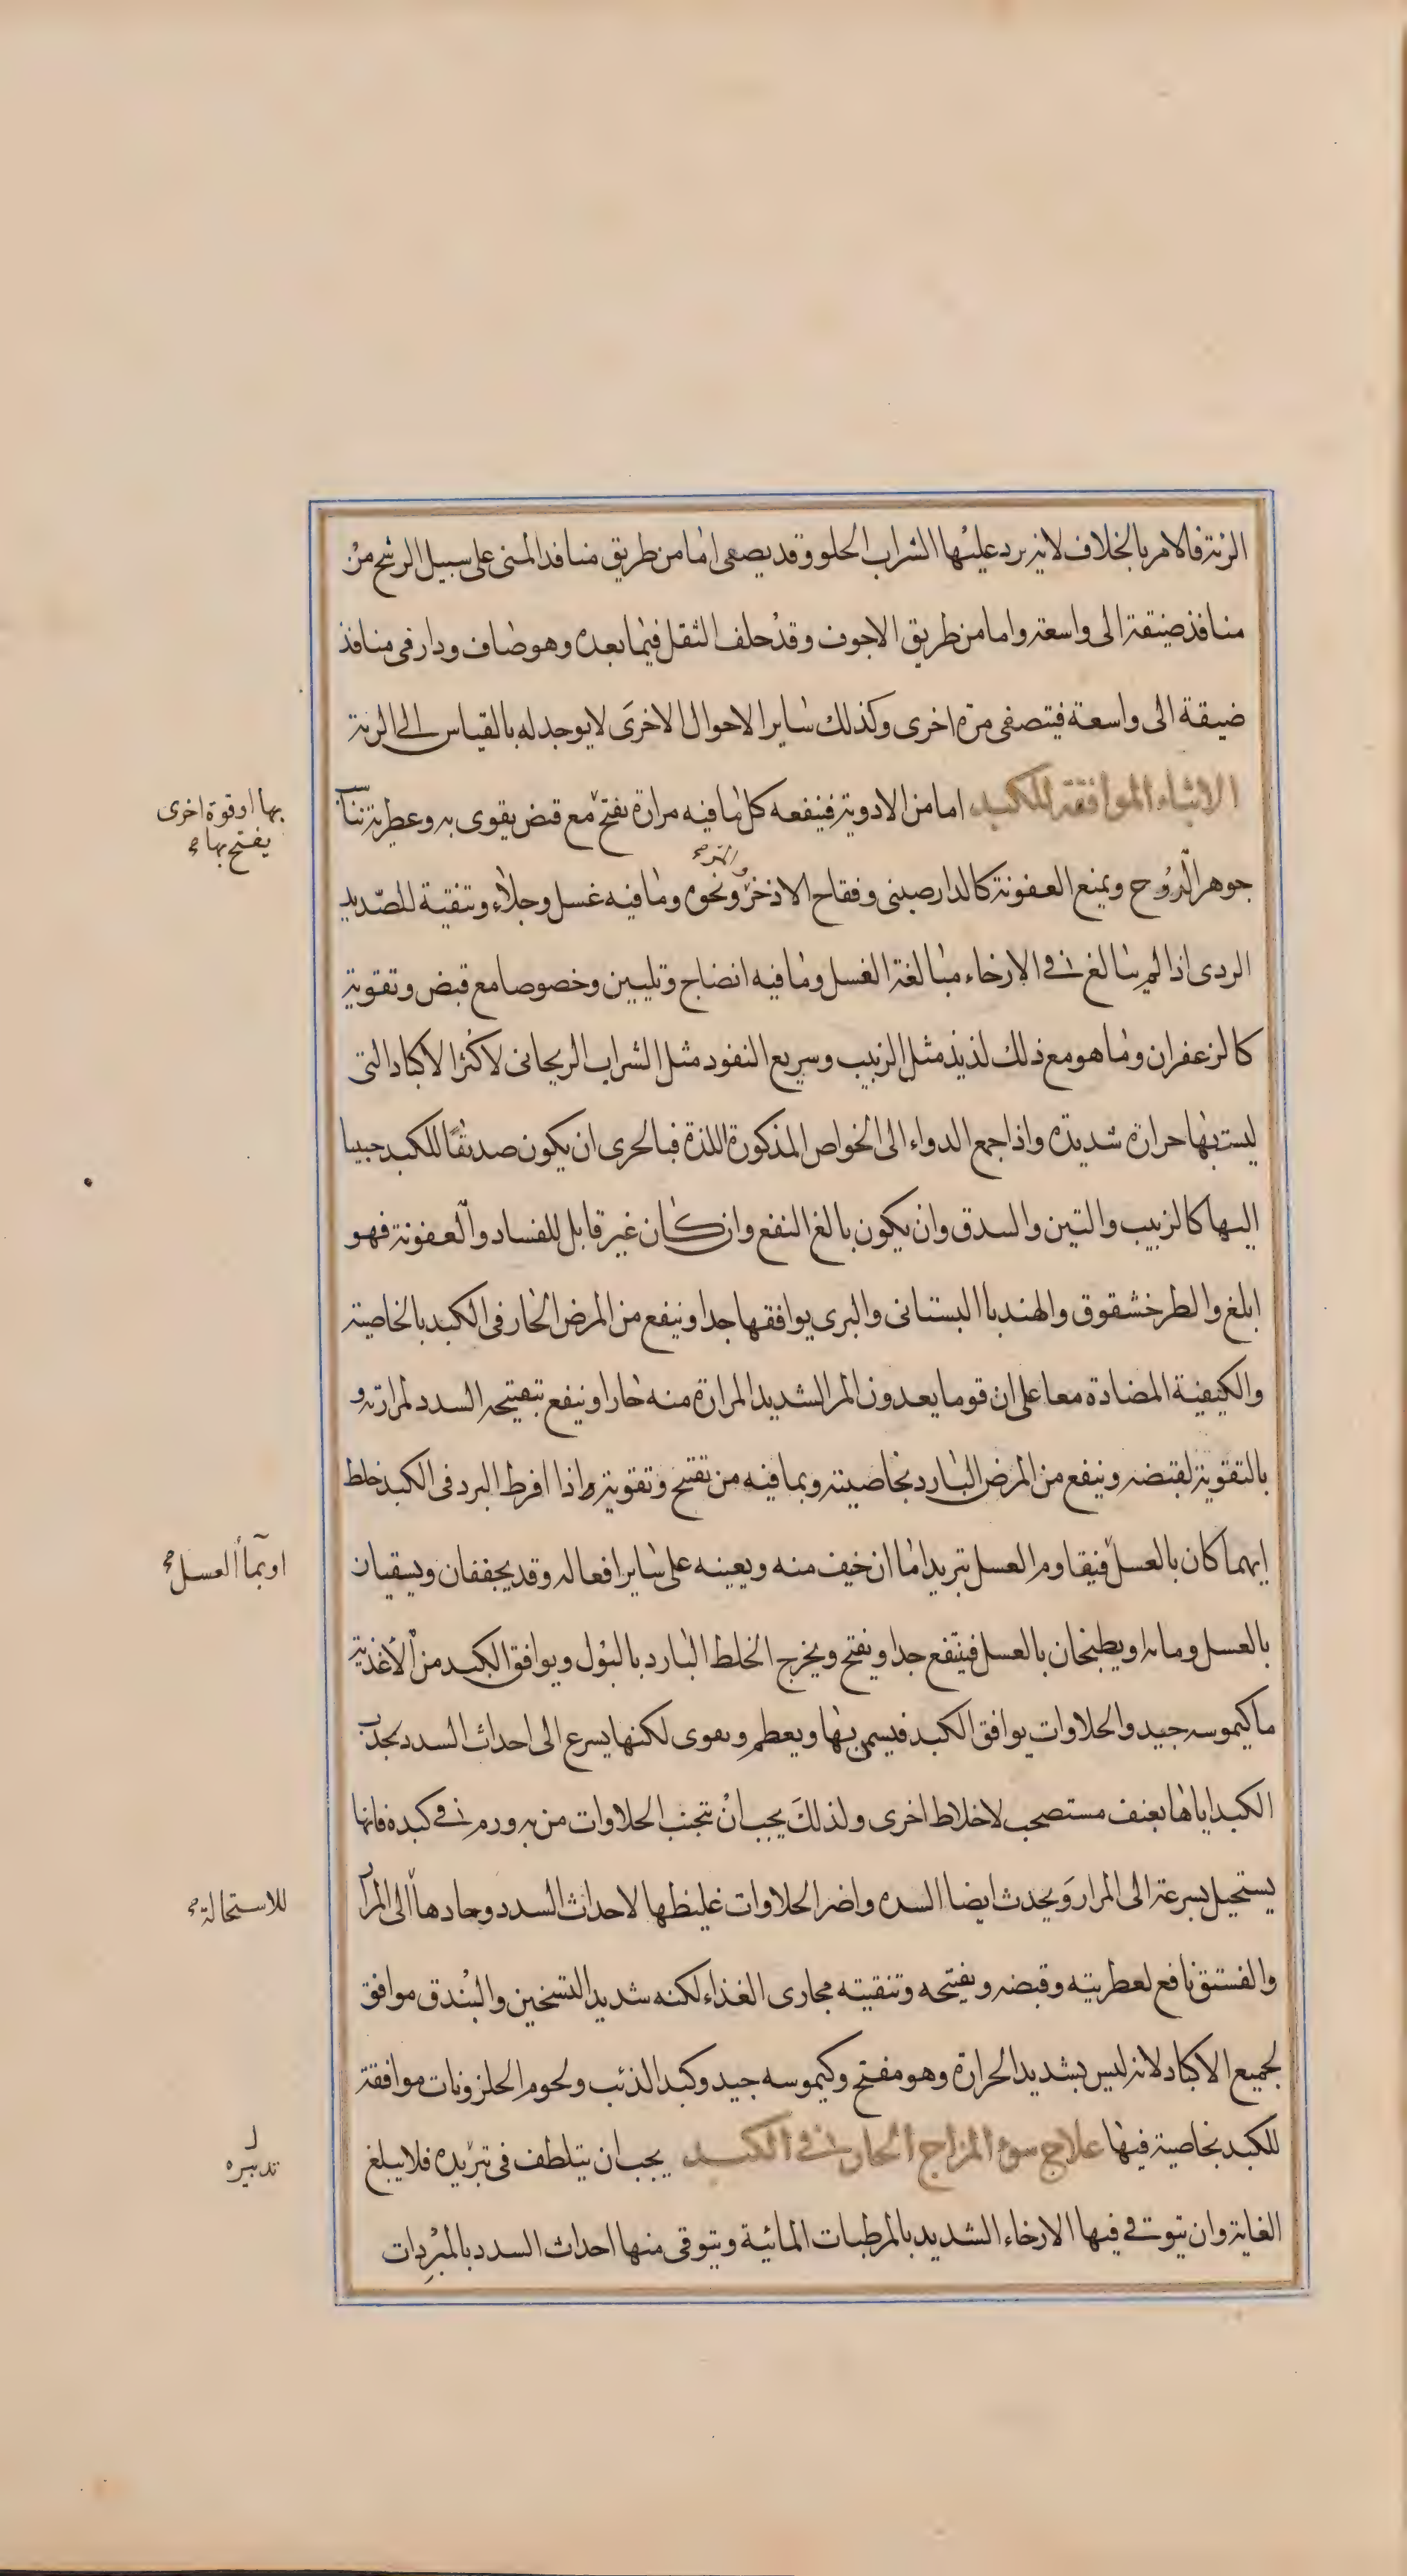 الرئة فالامر بالخلاف لانه يرد عليها الشراب الحلو وقد يصفى اما من طريق منافد المنى على سبيل الرشح من
منافذ ضيقة الى واسعة واما من طريق الاجوف وقد خلف الثفل فيما بعده وهو صاف ودار فى منافذ
ضيقة الى واسعة فيتصفى مرة اخرى وكذلك ساير الاحوال الاخرى لا يوجد له بالقياس الى الرئة
الاشياء الموافقة للكبد اما من الادوية فينفعه كل ما فيه مرارة يفتح مع قبض يقوى به وعطرية تناسب
بها او قوة اخرى
يفتح بها صح
جوهر الروح ويمنع العفونة كالدارصينى وفقاح الاذخر ونحوه وما فيه غسل وجلاء وتنقية للصديد
الردى اذا لم يبالغ فى الارخاء مبالغة الغسل وما فيه انضاج وتليين وخصوصا مع قبض وتقوية
كالزعفران وما هو مع ذلك لذيذ مثل الزبيب وسريع النفود مثل الشراب الريحانى لاكثر الاكباد التى
ليست بها حرارة شديدة واذا جمع الدواء الى الخواص المذكورة اللذة فبالحرى ان يكون صديقا للكبد حبيبا
اليها كالزبيب والتين والبندق وان يكون بالغ النفع وان كان غير قابل للفساد والعفونة فهو
ابلغ والطرخشقوق والهندبا البستانى والبرى يوافقها جدا وينفع من المرض الحار فى الكبد بالخاصية
والكيفية المضادة معا على ان قوما يعدون المر الشديد المرارة منه حارا وينفع بتفتيحه السدد لمرارته و
بالتقوية لقبضه وينفع من المرض البارد بخاصيته وبما فيه من تفتح وتقوية واذا افرط البرد فى الكبد خلط
ايهما كان بالعسل فيقاوم العسل تبريدا ما ان خيف منه ويعينه على ساير افعاله وقد يجففان ويسقيان
او بماء العسل صح
بالعسل ومائه او يطبخان بالعسل فينتفع جدا ويفتح ويخرج الخلط البارد بالبول ويوافق الكبد من الأغذية
ما كيموسه جيد والحلاوات يوافق الكبد فيسمن بها ويعظم ويقوى لكنها يسرع الى احداث السدد بجذب
الكبد اياها بعنف مستصحب لاخلاط اخرى ولذلك يجب ان تتجنب الحلاوات من به ورم فى كبده فانها
يستحيل بسرعة الى المرار ويحدث ايضا السده واضر الحلاوات غليظها لاحداث السدد وحادها الى المرار
للاستحالة صح
والفستق نافع لعطريته وقبضه ويفتحه وتنقيته مجارى الغذاء لكنه شديد التسخين والبندق موافق
لجميع الاكباد لانه ليس بشديد الحرارة وهو مفتح وكيموسه جيد وكبد الذئب ولحوم الحلزونات موافقة
للكبد بخاصية فيها علاج سوء المزاج الحار فى الكبد يجب ان يتلطف فى تبريده فلا يبلغ
تدبيره
الغاية وان يتوقى فيها الارخاء الشديد بالمرطبات المائية ويتوقى منها احداث السدد بالمبردات